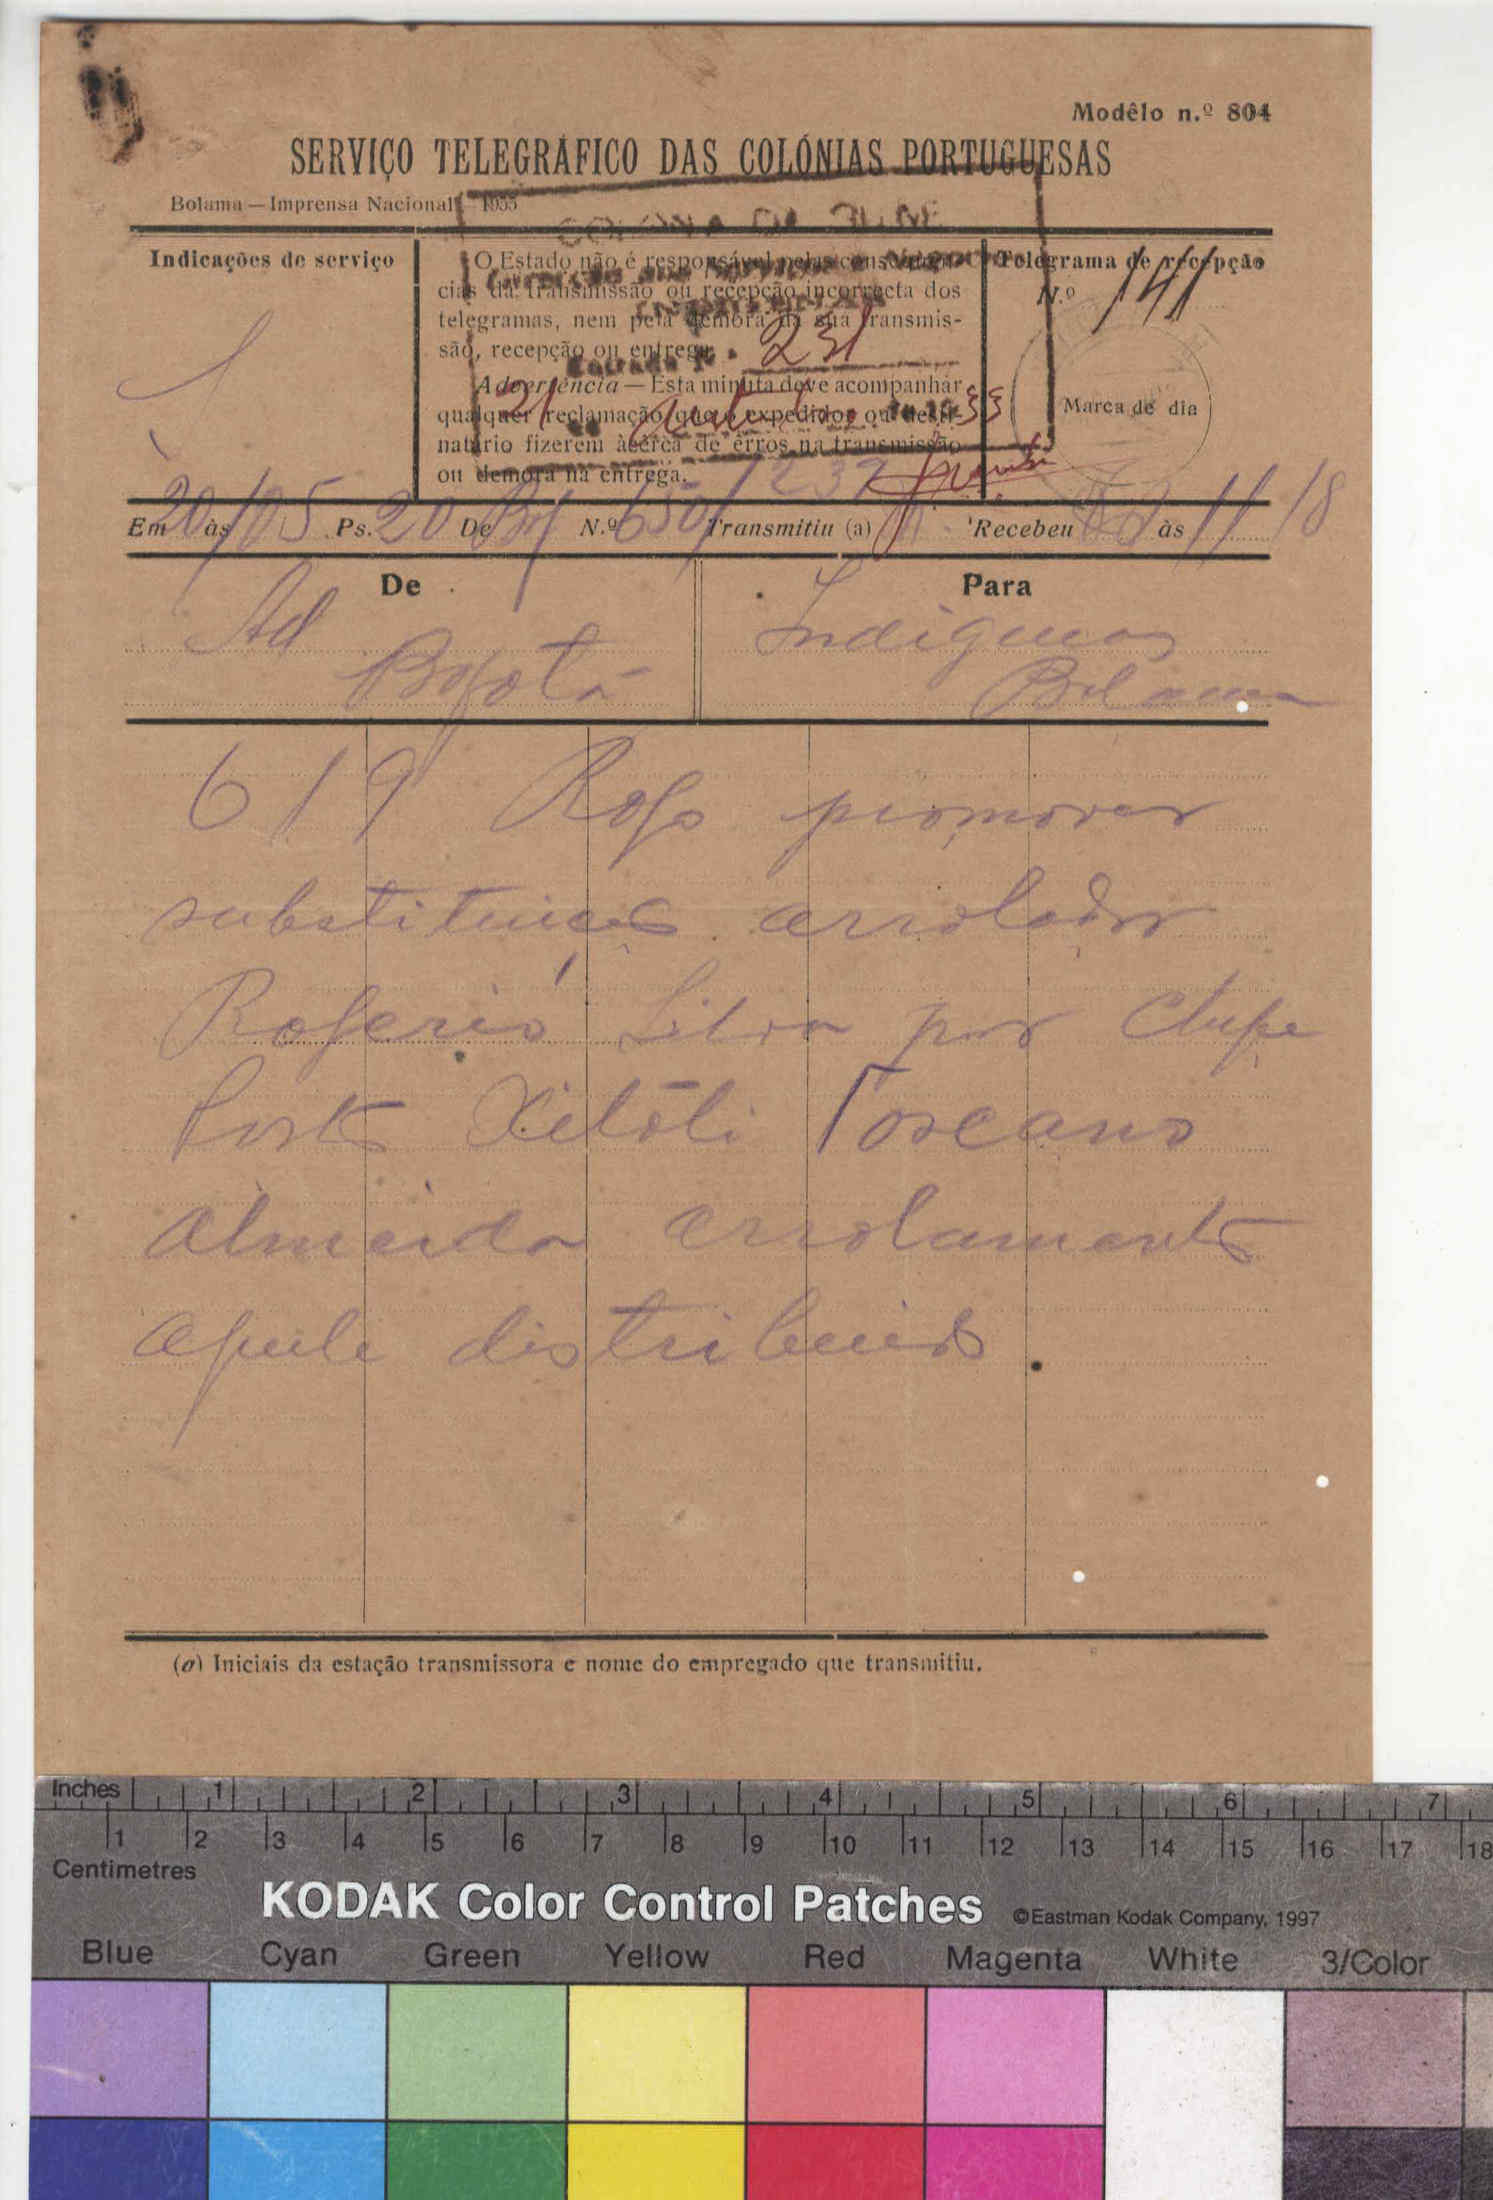 Modêlo n.º 804
SERVIÇO TELEGRÁFICO DAS COLÓNIAS PORTUGUESAS
Bolama — Imprensa Nacional — 1933
Indicações de serviço
O Estado não é responsável pelas consequên-
cias da transmissão ou recepção incorrecta dos
telegramas, nem pela demora da sua transmis-
são, recepção ou entrega.
Advertência — Esta minuta deve acompanhar
qualquer reclamação que o expedidor ou desti-
natário fizerem àcêrca de êrros na transmissão
ou demora na entrega.
Entrada N.º 231
21
33
Telegrama de recepção
N.º 141
Marca de dia
Em 20 às 105 Ps. 20 De N.º 650 Transmitiu (a) Recebeu às 11/18
De
Para
Ad
Indigenas
Bolama
619 Rogo promover
substituição arrolador
Rogerio Silva por Chefe
Posto Toscano
Almeida arrolamento
aquele distribuido
(a) Iniciais da estação transmissora e nome do empregado que transmitiu.
Inches 1 2 3 4 5 6 7
1 2 3 4 5 6 7 8 9 10 11 12 13 14 15 16 17 18
Centimetres
KODAK Color Control Patches ©Eastman Kodak Company, 1997
Blue Cyan Green Yellow Red Magenta White 3/Color